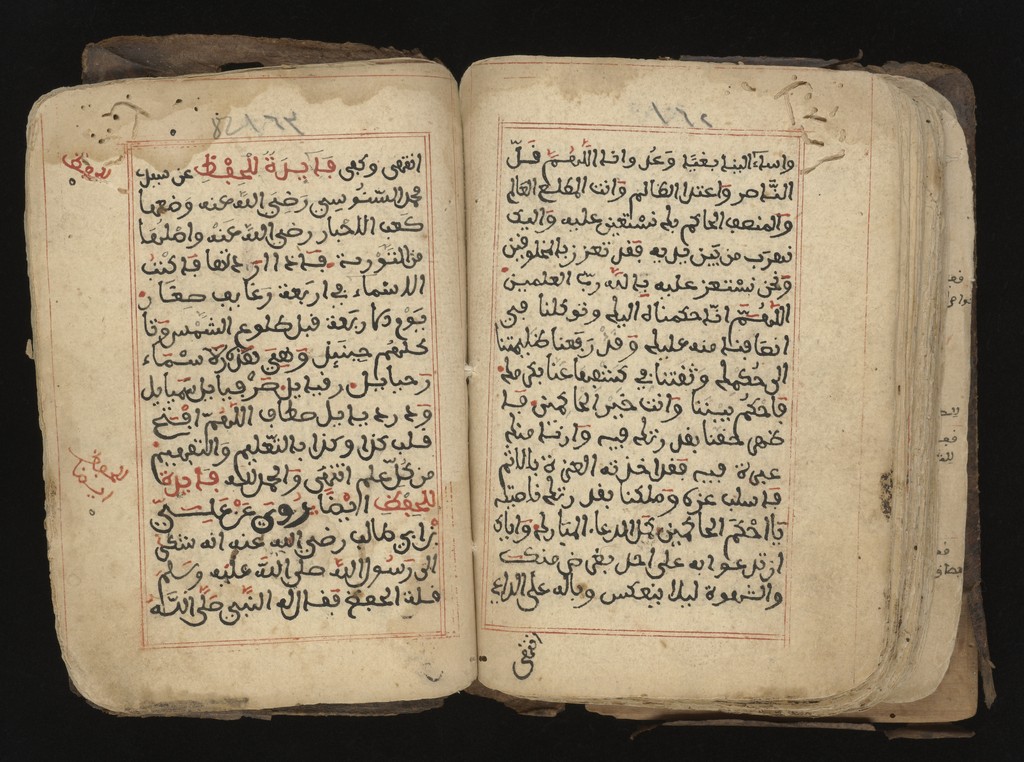 ١٦٢
واساء الينا بغيا وعد وانا اللهم قل
الناصر واعتدا الظالم وانت المطلع العالم
والمنصف الحاكم بك نستعين عليه واليك
نهرب من بين يديه فقد تعزز بالمخلوقين
ونحن نستعز عليه بالله رب العلمين
اللهم انا حكمناك اليك وتوكلنا في
انصافنا منه عليك وقد رفعنا ظلامتنا
الى حكمك وثقتنا في كشفها عنا بكرمك
فاحكم بيننا وانت خير الحاكمين فا
ظهر لحقنا بقدرتك فيه وارنا منك
عبرة فيه فقد اخذته العزة بالاثم
فاسلب عزه وملكنا بقدرتك ناصيته
يا احكم الحاكمين كل الدعاء المبارك واياك
ان تدعوا به على احد بغى منك
والشهوة ليلا ينعكس وباله على الداعي
انتهى
١٦٣
انتهى وكفى فايدة للحفظ عن سيد
محمد السنوسي رضي الله عنه وضعها
كعب الاحبار رضي الله عنه واصلها
من التورية فاذا اردتها فاكتب
الاسماء في اربعة رغايف صغار
يوم الاربعة قبل طلوع الشمس وتا
كلهم حينئذ وهي هذه الاسماء
رحيايل رفيايل صرفيايل سميايل
ودرديايل اللهم افتح
قلب كذا وكذا بالتعليم والتفهيم
من كل علم انتهى والحمد لله فايدة
للحفظ ايضا روي عن
بن مالك رضي الله عنه انه شكى
الى رسول الله صلى الله عليه وسلم
قلة الحفظ فقال له النبي صلى الله
للحفظ
للحفظ
ايضا